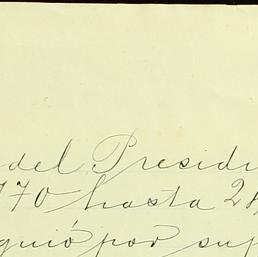 del Presidi
170 hasta 28
guió por sup